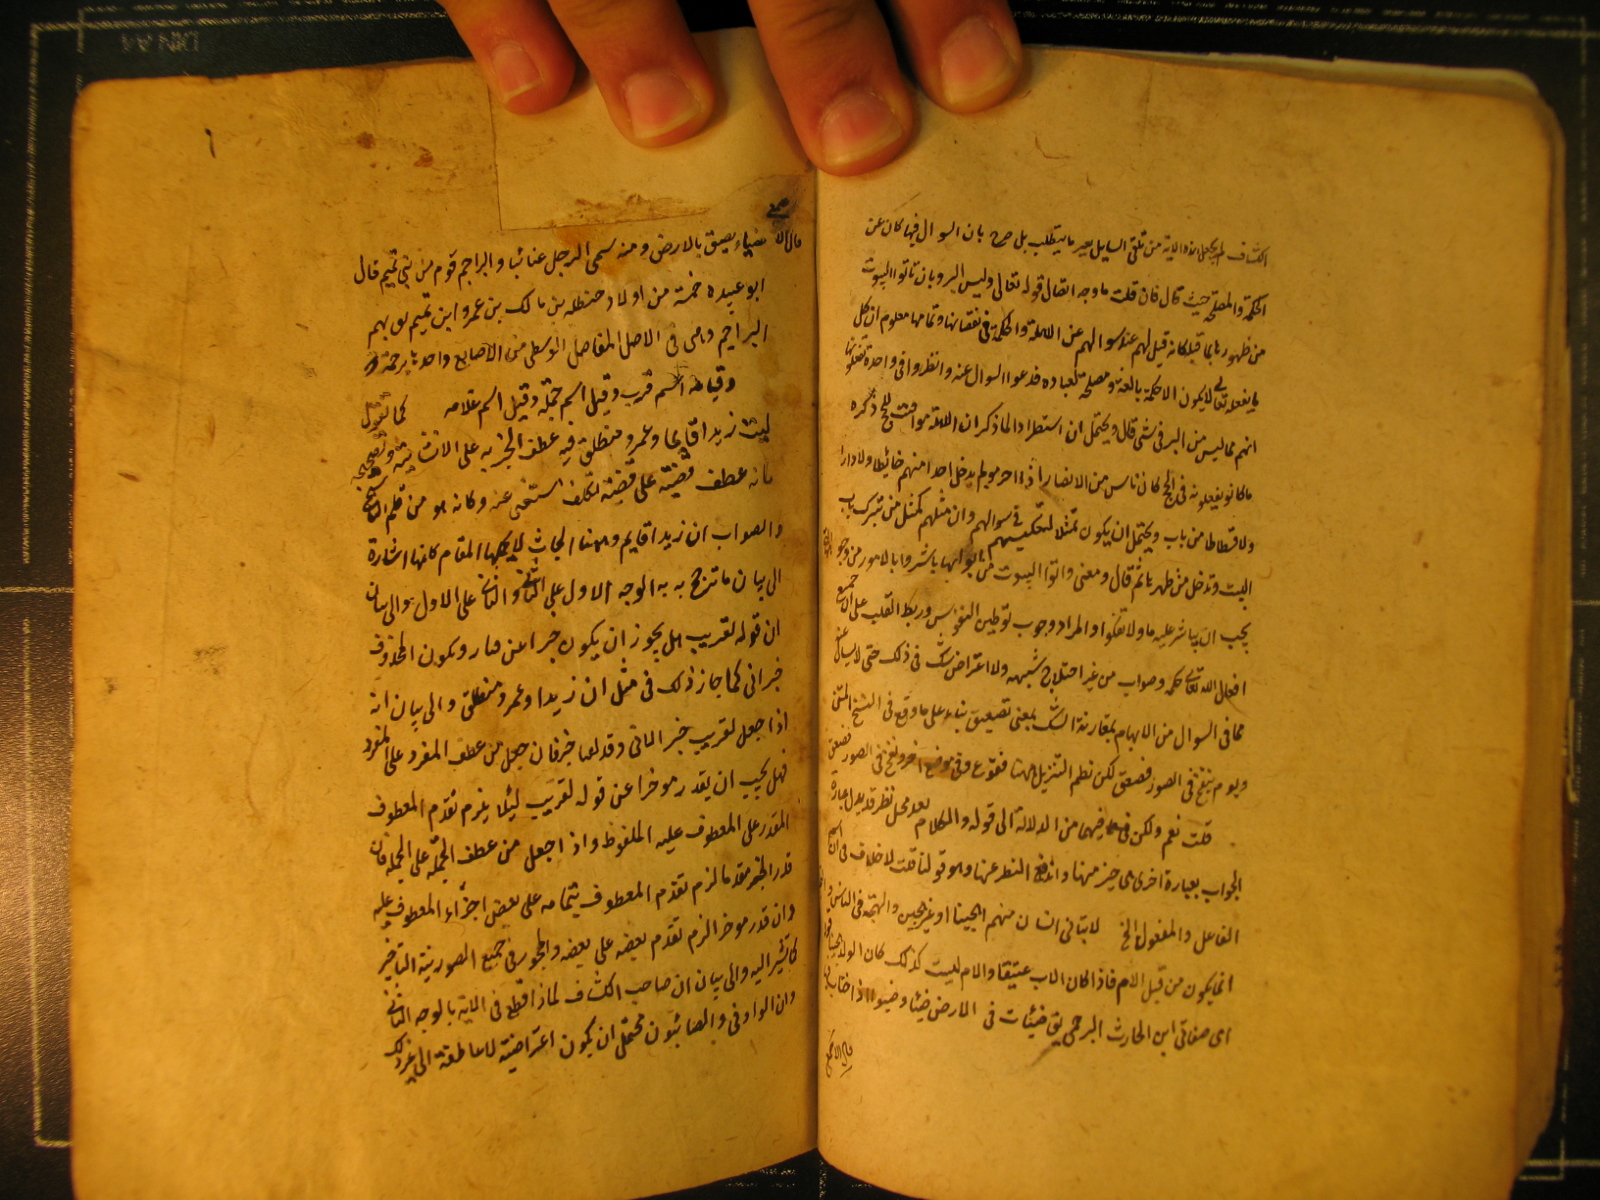 الكشاف لم يجعل هذه الاية من تلقى السايل بغير ما يتطلب بل صرح بان السوال فيها كان عن
الحكمة والمصلحة حيث قال فان قلت ما وجه اتصال قوله تعالى وليس البر بان تاتوا البيوت
من ظهورها بما قبله كانه قيل لهم عند سوالهم عن الاهلة والحكمة فى نقصانها وتمامها معلوم ان كل
ما يفعله تعالى لا يكون الا حكمة بالغة ومصلحة لعباده فدعوا السوال عنه وانظروا فى واحدة تفعلونها
انتم مما ليس من البر فى شئ قال ويحتمل ان استطرادا لما ذكر ان الاهلة مواقيت للحج ذكر
ما كانوا يفعلونه فى الحج كان ناس من الانصار اذا احرموا لم يدخل احد منهم حائطا ولا دارا
ولا فسطاطا من باب ويحتمل ان يكون تمثيلا لتعكيسهم فى سوالهم وان مثلهم كمثل من يترك باب
البيت ويدخل من ظهره ثم قال ومعنى واتوا البيوت من ابوابها باشروا الامور من وجوهها التى
يجب ان يباشر عليها ولا تعكسوا والمراد وجوب توطين النفوس وربط القلب على ان جميع
افعال الله تعالى حكمة وصواب من غير اختلاج شبهة ولا اعتراض شك فى ذلك حتى لا يسال عنه
لما فى السوال من الابهام بمقارنة الشك بمعنى تصعيق بناء على ما وقع فى النسخ المتن
ويوم ينفخ فى الصور فصعق لكن نظم التنزيل ههنا ففزع وفى موضع اخر ونفخ فى الصور فصعق
قلت نعم ولكن فيهما من الدلالة الى قوله والكلام بعد محل نظر قد يدل عبارة
الجواب بعبارة اخرى هى خير منها واندفع النظر عنها وهو قولنا قلت لا خلاف فى ان اسم
الفاعل والمفعول الخ لا يتانى انسان منهم الهجينا او غير هجين والهجنة فى الناس
انما يكون من قبل الام فاذا كان الاب عتيقا والام ليست كذلك كان الولد هجينا
اى ضابئ ابن الحارث البرجمى يق ضبئات فى الارض ضبئا وضبوءا اذا اختبات
قال الاصمعى
قال الا ضباء يصيق بالارض ومنه سمى الرجل ضابئا والبراجم قوم من بنى تميم قال
ابو عبيده خمسة من اولاد حنظله بن مالك بن عمرو ابن تميم يق لهم
البراجم وهى فى الاصل المفاصل الوسطى من الاصابع واحدتها برجمة
وقيار اسم فرس وقيل اسم جمله وقيل اسم غلامه كما تقول
ليت زيدا قايما وعمرو منطلق فيه عطف الخبرية على الانشائية وتصحيحه
بانه عطف قصة على قصة تكلف استغنى عنه وكانه هو من قلم الناسخ
والصواب ان زيدا قايم وههنا ابحاث لا يحتملها المقام كانها اشارة
الى بيان ما ترجح به الوجه الاول على الثانى والثانى على الاول والى بيان
ان قوله لغريب هل يجوز ان يكون خبرا عن قيار ويكون المحذوف
خبر انى كما جاز ذلك فى مثل ان زيدا وعمرو منطلق والى بيان انه
اذا جعل لغريب خبر الثانى وقدر لها خبر فان جعل من عطف المفرد على المفرد
فهل يجب ان يقدر موخرا عن قوله لغريب ليلا يلزم تقدم المعطوف
المقدر على المعطوف عليه الملفوظ واذا جعل من عطف الجملة على الجملة فان
قدر الخبر مقدما لزم تقدم المعطوف بتمامه على بعض اجزاء المعطوف عليه
وان قدر موخرا لزم تقدم بعضه على بعضه والمجوز فى جميع الصور نية التاخير
كما تشير اليه والى بيان ان صاحب الكشاف لماذا قطع فى الاية بالوجه الثانى
وان الواو فى والصابئون محتمل ان يكون اعتراضية لا عاطفة الى غير ذلك